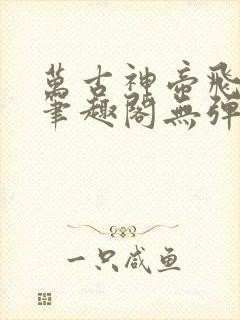 萬古神帝飛
筆趣閣無彈
一只咸鱼